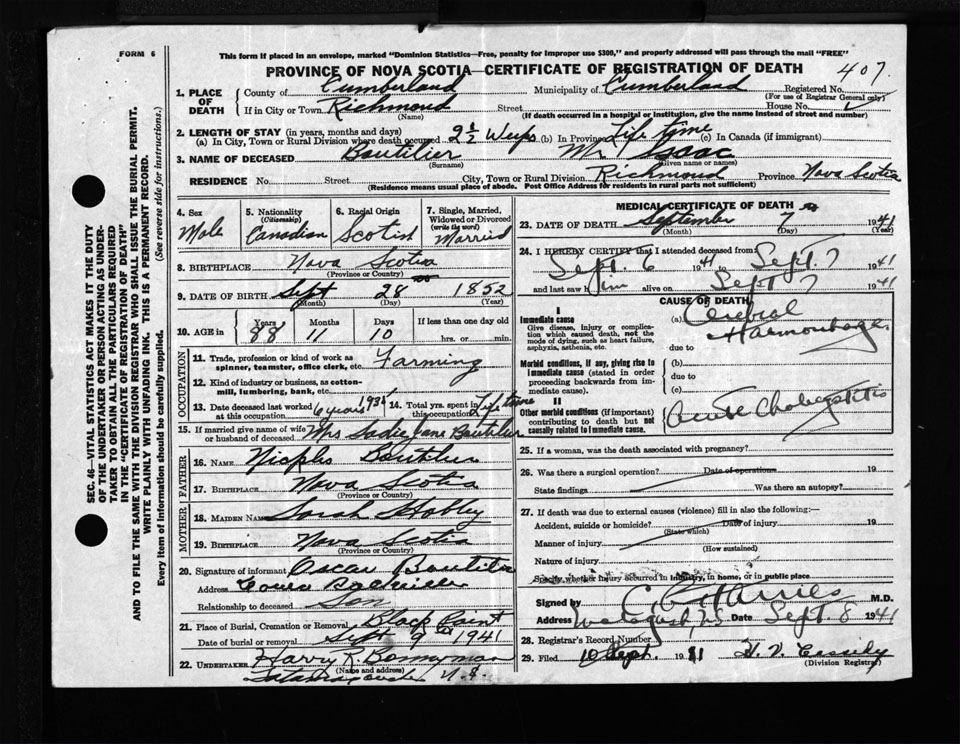 FORM 6
This form if placed in an envelope, marked "Dominion Statistics—Free, penalty for improper use $300," and properly addressed will pass through the mail "FREE"
PROVINCE OF NOVA SCOTIA—CERTIFICATE OF REGISTRATION OF DEATH 407.
1. PLACE OF DEATH
County of Cumberland Municipality of Cumberland Registered No.
(For use of Registrar General only)
If in City or Town Richmond Street House No.
(Name) (If death occurred in a hospital or institution, give the name instead of street and number)
2. LENGTH OF STAY (in years, months and days)
(a) In City, Town or Rural Division where death occurred 2½ (b) In Province Life time (c) In Canada (if immigrant)
3. NAME OF DECEASED Boutilier Mr Isaac
(Surname) (Given name or names)
RESIDENCE No. Street City, Town or Rural Division Richmond Province Nova Scotia
(Residence means usual place of abode. Post Office Address for residents in rural parts not sufficient)
4. Sex Male
5. Nationality (Citizenship) Canadian
6. Racial Origin Scotish
7. Single, Married, Widowed or Divorced (write the word) Married
8. BIRTHPLACE Nova Scotia
(Province or Country)
9. DATE OF BIRTH Sept 28 1852
(Month) (Day) (Year)
10. AGE in Years 88 Months 11 Days 10 If less than one day old hrs. or min.
OCCUPATION
11. Trade, profession or kind of work as spinner, teamster, office clerk, etc. Farming
12. Kind of industry or business, as cotton-mill, lumbering, bank, etc.
13. Date deceased last worked at this occupation 6 years 1935 14. Total yrs. spent in this occupation Life time
15. If married give name of wife or husband of deceased Mrs Sadie Jane Boutilier
FATHER
16. NAME Boutilier
17. BIRTHPLACE Nova Scotia
(Province or Country)
MOTHER
18. MAIDEN NAME Sarah
19. BIRTHPLACE Nova Scotia
(Province or Country)
20. Signature of informant Oscar Boutilier
Address
Relationship to deceased Son
21. Place of Burial, Cremation or Removal Black Point
Date of burial or removal Sept 9th 1941
22. UNDERTAKER Harry R Bonnyman
(Name and address)
Tatamagouche N.S.
MEDICAL CERTIFICATE OF DEATH
23. DATE OF DEATH September 7 1941
(Month) (Day) (Year)
24. I HEREBY CERTIFY that I attended deceased from
Sept. 6 1941 to Sept. 7 1941
and last saw him alive on Sept 7 1941
CAUSE OF DEATH
I
Immediate cause
Give disease, injury or complication which caused death, not the mode of dying, such as heart failure, asphyxia, asthenia, etc.
(a) Cerebral Haemorrhage
due to
Morbid conditions, if any, giving rise to immediate cause (stated in order proceeding backwards from immediate cause).
(b)
due to
(c)
II
Other morbid conditions (if important) contributing to death but not causally related to immediate cause.
Acute
25. If a woman, was the death associated with pregnancy?
26. Was there a surgical operation? Date of operation 19
State findings Was there an autopsy?
27. If death was due to external causes (violence) fill in also the following:—
Accident, suicide or homicide? Date of injury 19
(State which)
Manner of injury
(How sustained)
Nature of injury
Specify whether injury occurred in industry, in home, or in public place
Signed by M.D.
Address Date Sept. 8 1941
28. Registrar's Record Number
29. Filed 10 Sept. 1941
(Division Registrar)
SEC. 46—VITAL STATISTICS ACT MAKES IT THE DUTY
OF THE UNDERTAKER OR PERSON ACTING AS UNDER-
TAKER TO OBTAIN ALL THE PARTICULARS REQUIRED
IN THE "CERTIFICATE OF REGISTRATION OF DEATH"
AND TO FILE THE SAME WITH THE DIVISION REGISTRAR WHO SHALL ISSUE THE BURIAL PERMIT.
WRITE PLAINLY WITH UNFADING INK. THIS IS A PERMANENT RECORD.
Every item of information should be carefully supplied. (See reverse side for instructions.)